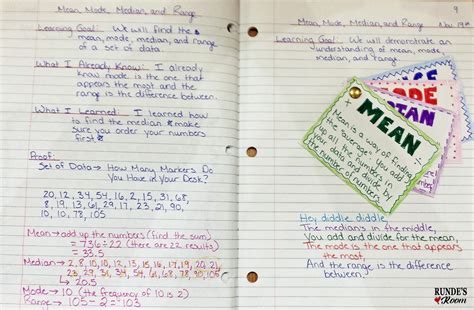 Mean, Mode, Median, and Range
Learning Goal: We will find the
mean, mode, median, and range
of a set of data.
What I Already Know: I already
know mode is the one that
appears the most and the
range is the difference between.
What I Learned: I learned how
to find the median & make
sure you order your numbers
first
Proof:
Set of Data → How Many Markers Do
You Have in Your Desk?
20, 12, 34, 54, 16, 2, 15, 31, 68,
8, 19, 13, 61, 29, 17, 23, 21, 90,
10, 10, 78, 105
Mean → add up the numbers (find the sum)
= 736 ÷ 22 (there are 22 results)
= 33.5
Median → 2, 8, 10, 10, 12, 13, 15, 16, 17, 19, 20, 21,
23, 29, 31, 34, 54, 61, 68, 78, 90, 105
Mode → 10 (the frequency of 10 is 2)
Range → 105 - 2 = 103
9
Mean, Mode, Median, and Range Nov. 19th
Learning Goal: We will demonstrate an
understanding of mean, mode,
median, and range
MODE
MEAN
Mean is a way of finding
the "average". You add
all the numbers in
you data and divide by
the number of numbers.
Hey diddle diddle,
The medians in the middle,
You add and divide for the mean,
The mode is the one that appears the
most,
And the range is the difference
between.
RUNDE'S
Room